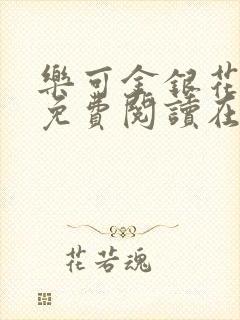 樂可金銀花
免費閱讀在
花若魂